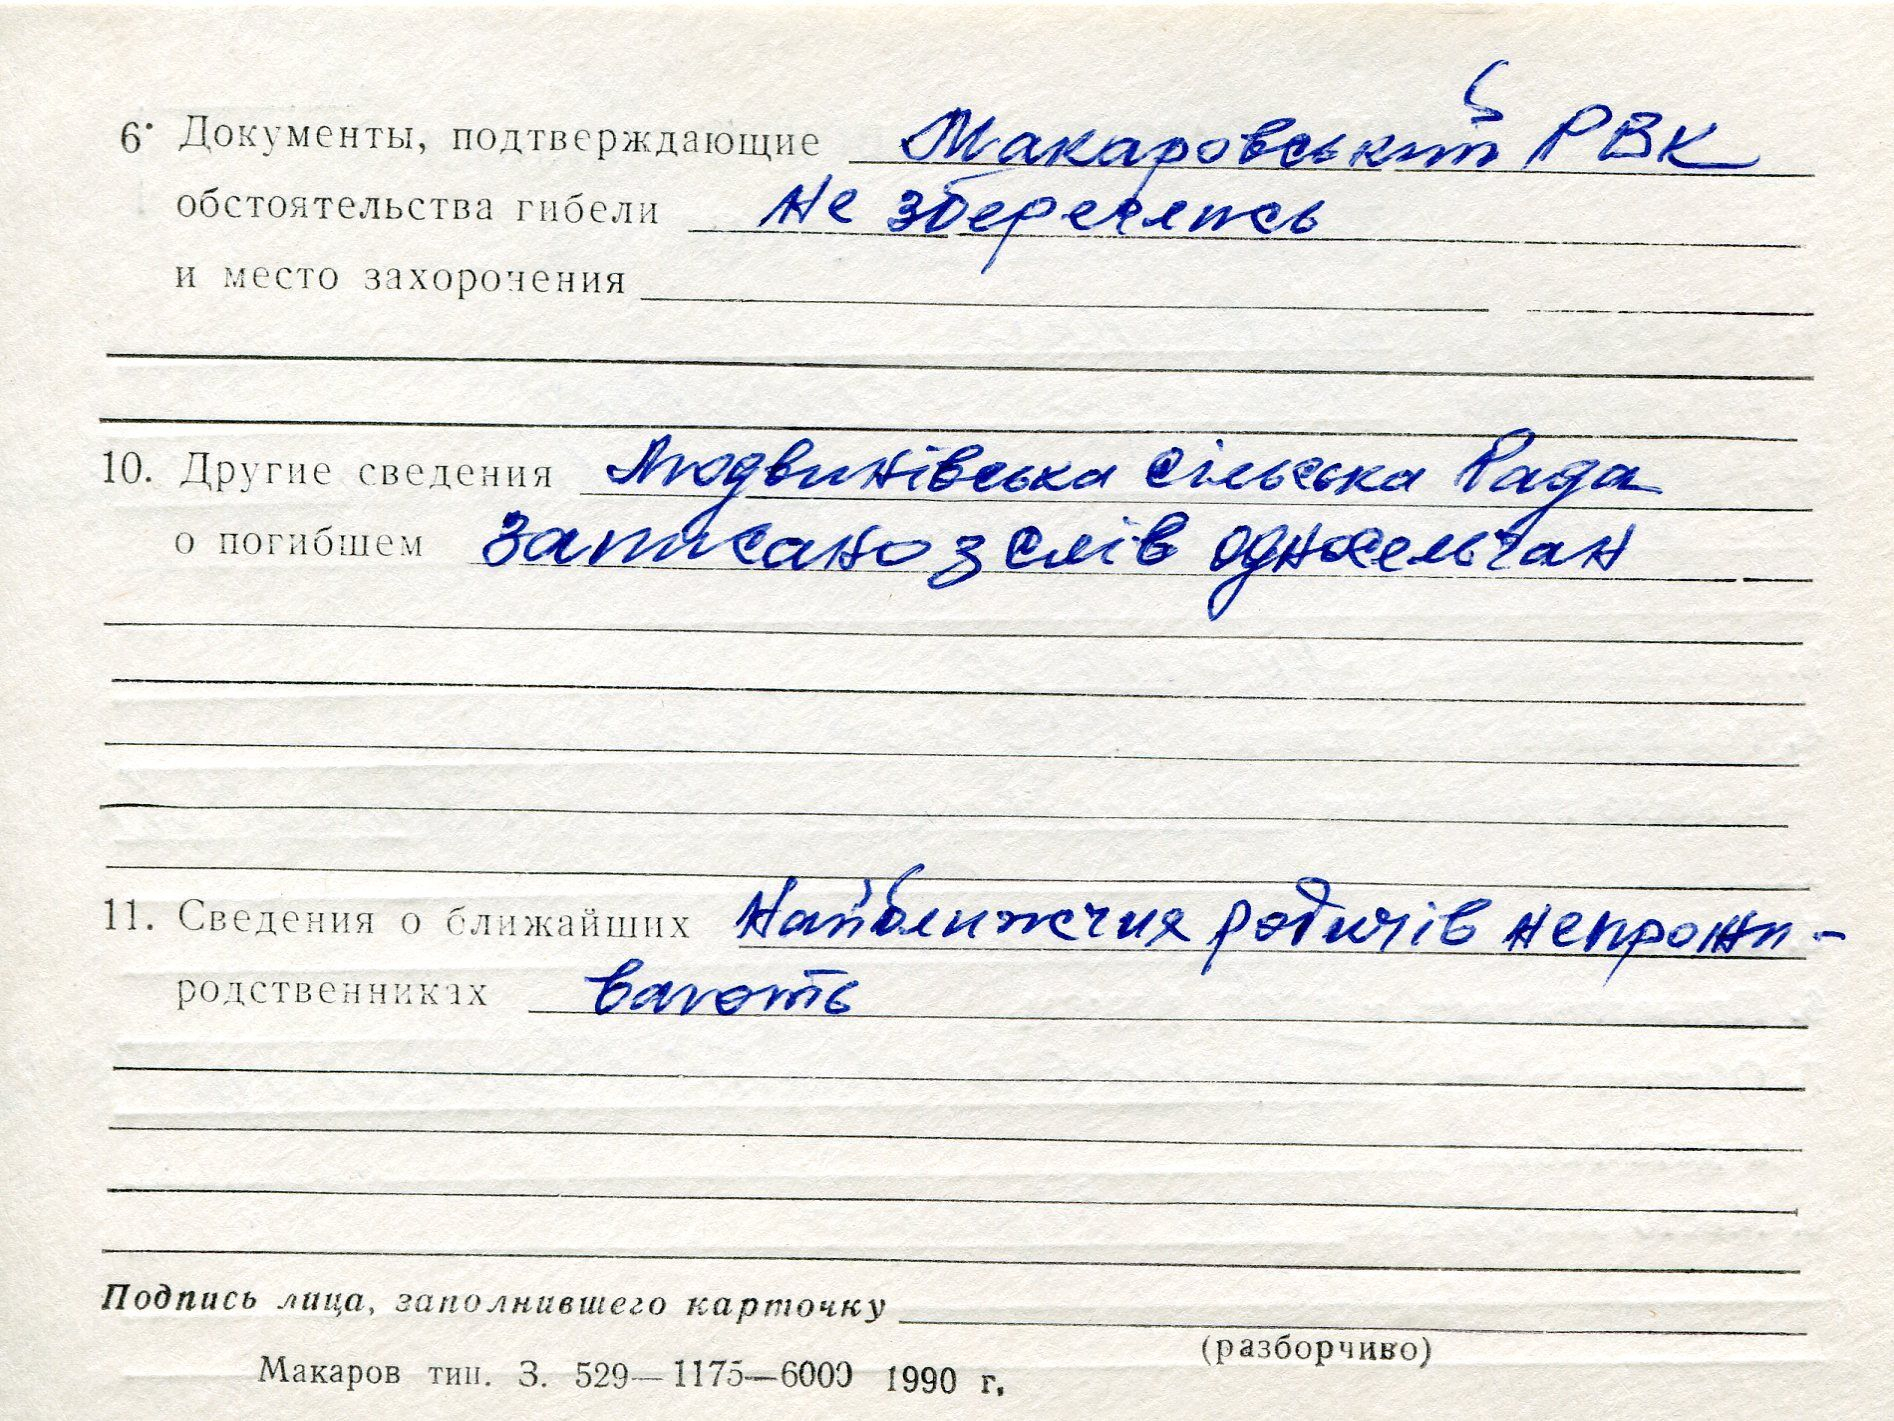 6. Документы, подтверждающие Макаровський РВК
обстоятельства гибели не збереглись
и место захоронения
10. Другие сведения Людвинівська сільська Рада
о погибшем записано з слів односельчан
11. Сведения о ближайших Найближчих родичів непрожи-
родственниках вають
Подпись лица, заполнившего карточку
(разборчиво)
Макаров тип. З. 529—1175—6000 1990 г.